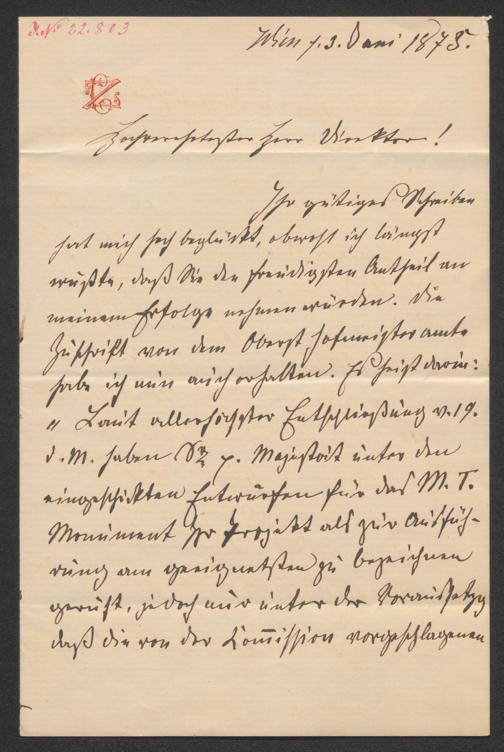 J. No 22.803
Wien d. 3. Juni 1875.
Hochverehrtester Herr Direktor!
Ihr gütiges Schreiben
hat mich sehr beglückt, obwohl ich längst
wußte, daß Sie den freudigsten Antheil an
meinem Erfolge nehmen würden. Die
Zuschrift von dem Obersthofmeisteramte
habe ich nun auch erhalten. Es heist darin:
„ Laut allerhöchster Entschließung v. 19.
d. M. haben Se p. Majestät unter den
eingeschickten Entwürfen für das M. T.
Monument Ihr Projekt als zur Ausfüh-
rung am geeignetsten zu bezeichnen
geruht, jedoch nur unter der Voraussetzg
daß die von der Comission vorgeschlagenen